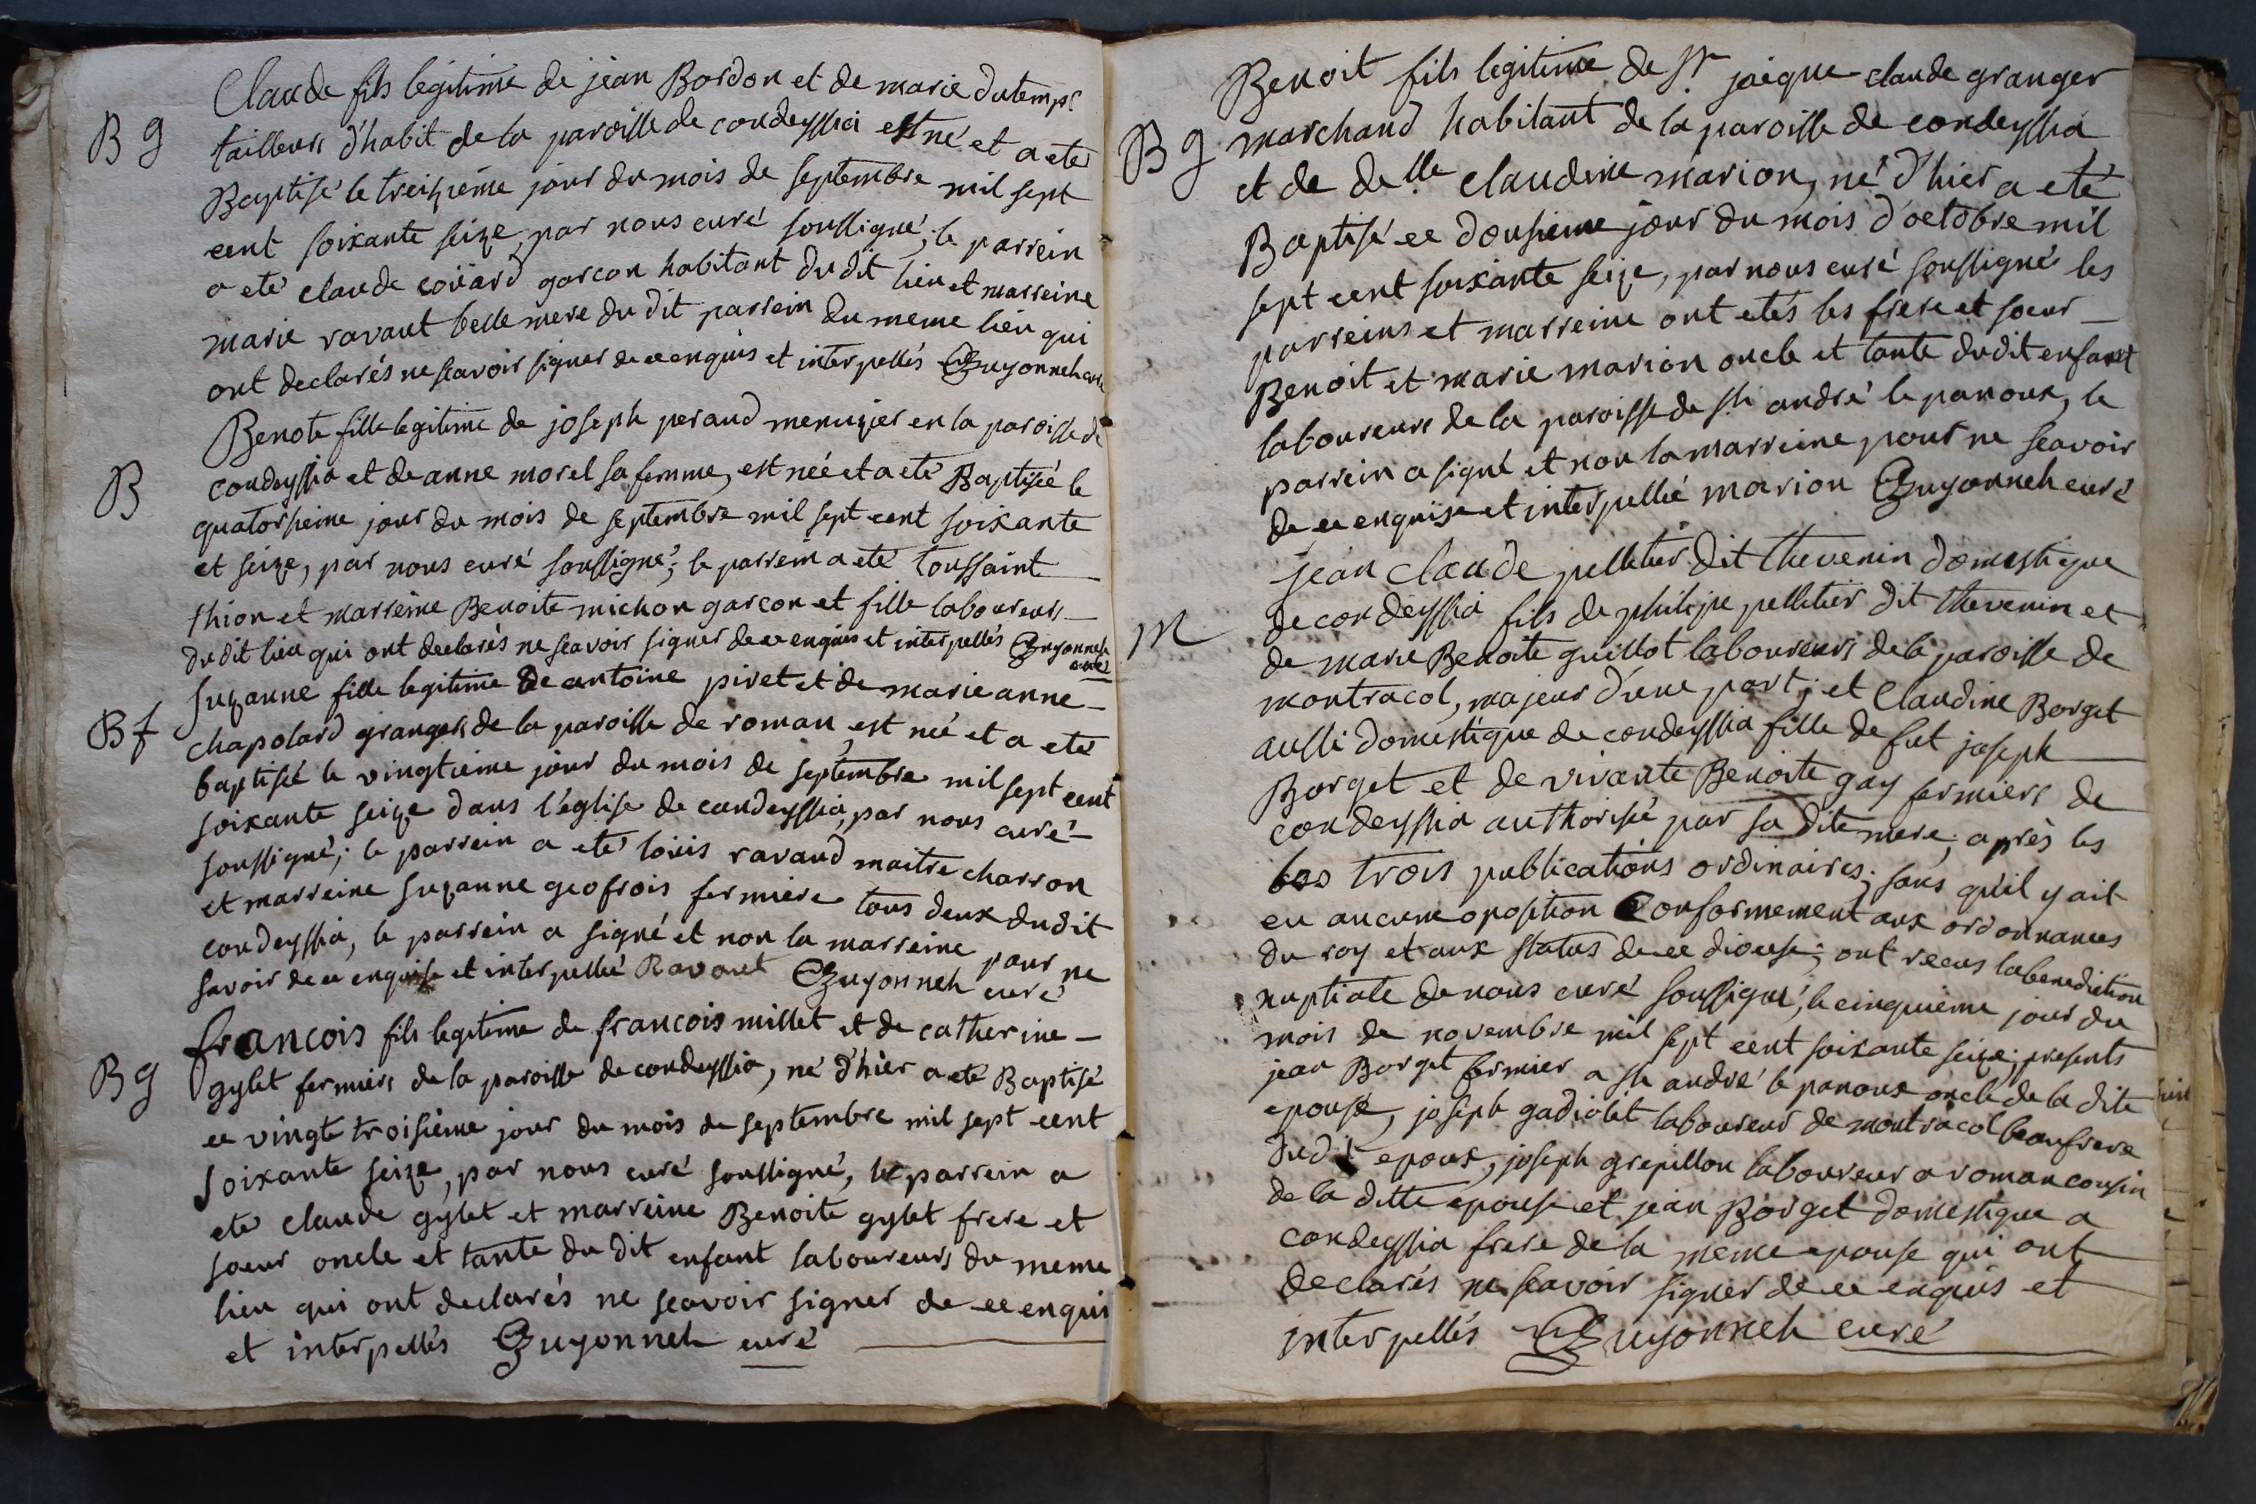 Claude fils legitime de jean Bordon et de marie dutemps
B g
tailleurs d'habit de la paroisse de condeyssia est né et a eté
Baptisé le treizième jour du mois de septembre mil sept
cent soixante seize, par nous curé soussigné; le parrein
a eté claude coüard garcon habitant du dit lieu et marreine
marie ravaut belle mere du dit parrein du meme lieu qui
ont declarés ne scavoir signer de ce enquis et interpellés Guyonneh curé
Benote fille legitime de joseph peraud menuizier en la paroisse de
B
condeyssia et de anne morel sa femme, est née et a eté Baptisée le
quatorsieme jour du mois de septembre mil sept cent soixante
et seize, par nous curé soussigné; le parrein a eté toussaint
thion et marreine Benoite michon garcon et fille laboureurs
du dit lieu qui ont declarés ne scavoir signer de ce enquis et interpellés Guyonneh
curé
Suzanne fille legitime de antoine pivet et de marie anne
B f
chapolard grangers de la paroisse de roman, est née et a eté
baptisée le vingtieme jour du mois de septembre mil sept cent
soixante seize dans l'eglise de condeyssia, par nous curé
soussigné; le parrein a eté loüis ravaud maitre charron
et marreine suzanne geofrois fermiere tous deux du dit
condeyssia, le parrein a signé et non la marreine pour ne
savoir de ce enquise et interpellée Ravaut Guyonneh curé
francois fils legitime de francois millet et de catherine
B g
gylet fermiers de la paroisse de condeyssia, né d'hier a eté Baptisé
ce vingt troisième jour du mois de septembre mil sept cent
soixante seize, par nous curé soussigné, le parrein a
eté claude gylet et marreine Benoite gylet frere et
soeur oncle et tante du dit enfant laboureurs du meme
lieu qui ont declarés ne scavoir signer de ce enqui
et interpellés Guyonneh curé
Benoit fils legitime de Sr jacque claude granger
B g
marchand habitant de la paroisse de condeyssia
et de delle claudine marion, né d'hier a eté
Baptisé ce dousieme jour du mois d'octobre mil
sept cent soixante seize, par nous curé soussigné les
parreins et marreine ont etés les frere et soeur
Benoit et marie marion oncle et tante dudit enfant
laboureurs de la paroisse de st andré le panoux, le
parrein a signé et non la marreine pour ne scavoir
de ce enquise et interpellée marion Guyonneh curé
jean claude pelletier dit thevenin domestique
M
de condeyssia fils de philipe pelletier dit thevenin et
de marie Benoite guillot laboureurs de la paroisse de
montracol, majeur d'une part; et claudine Borget
aussi domestique de condeyssia fille de fut joseph
Borget et de vivante Benoite gay fermiers de
condeyssia authorisée par sa dite mere; après les
les trois publications ordinaires; sans qu'il y ait
eu aucune oposition conformement aux ordonnances
du roy et aux status de ce diocese; ont recus la benediction
nuptiale de nous curé soussigné, le cinquième jour du
mois de novembre mil sept cent soixante seize; presents
jean Borget fermier a st andré le panoux oncle de la dite
epouse, joseph gadiolet laboureur de montracol beaufrere
dudit epoux, joseph grepillon laboureur a roman cousin
de la ditte epouse et jean Borget domestique a
condeyssia frere de la meme epouse qui ont
declarés ne scavoir signer de ce enquis et
interpellés Guyonneh curé